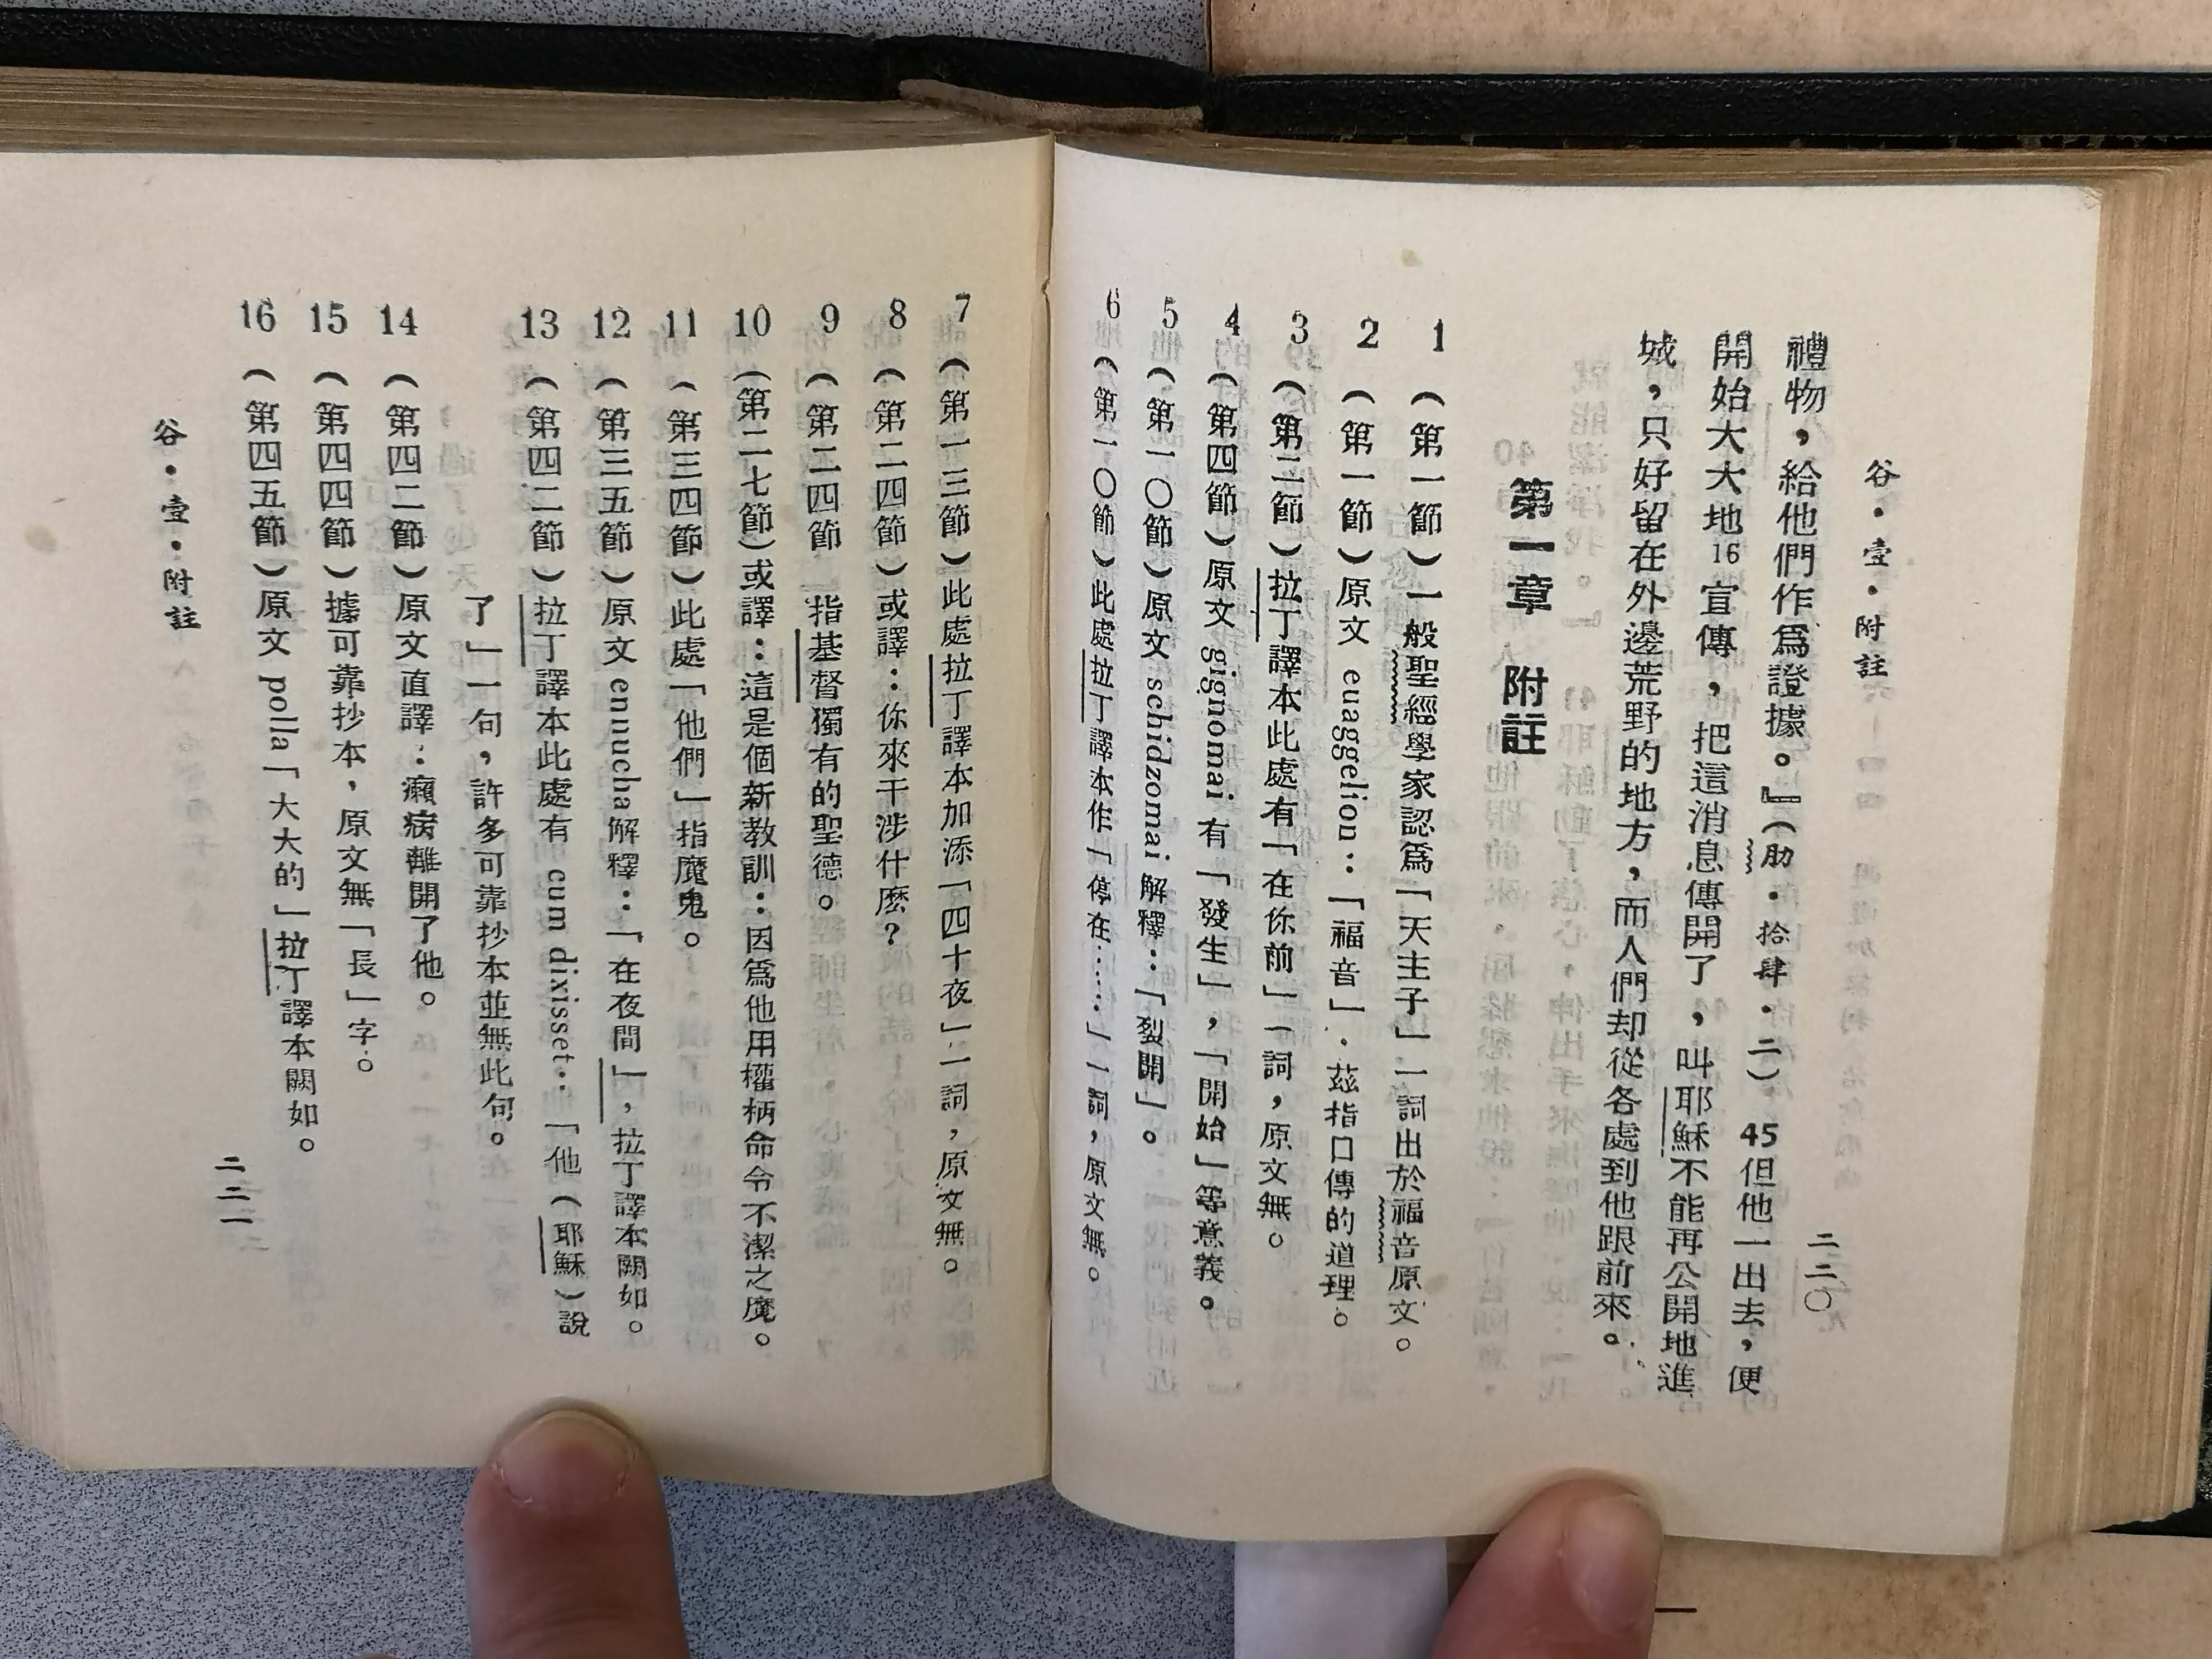 谷．壹．附註
二二〇
禮物，給他們作爲證據。』（肋．拾肆．二） 45但他一出去，便
開始大大地16宣傳，把這消息傳開了，叫耶穌不能再公開地進
城，只好留在外邊荒野的地方，而人們却從各處到他跟前來。
第一章 附註
1 （第一節）一般聖經學家認爲「天主子」一詞出於福音原文。
2 （第一節）原文 euaggelion：「福音」．茲指口傳的道理。
3 （第二節）拉丁譯本此處有「在你前」一詞，原文無。
4 （第四節）原文 gignomai 有「發生」，「開始」等意義。
5 （第一〇節）原文 schidzomai 解釋：「裂開」。
6 （第一〇節）此處拉丁譯本作「停在……」一詞，原文無。
7 （第一三節）此處拉丁譯本加添「四十夜」一詞，原文無。
8 （第二四節）或譯：你來干涉什麽？
9 （第二四節 指基督獨有的聖德。
10 （第二七節）或譯：這是個新教訓：因爲他用權柄命令不潔之魔。
11 （第三四節）此處「他們」指魔鬼。
12 （第三五節）原文 ennucha 解釋：「在夜間」，拉丁譯本闕如。
13 （第四二節）拉丁譯本此處有 cum dixisset：「他（耶穌）說
了」一句，許多可靠抄本並無此句。
14 （第四二節）原文直譯：癩病離開了他。
15 （第四四節）據可靠抄本，原文無「長」字。
16 （第四五節）原文 polla「大大的」拉丁譯本闕如。
谷．壹．附註
二二一